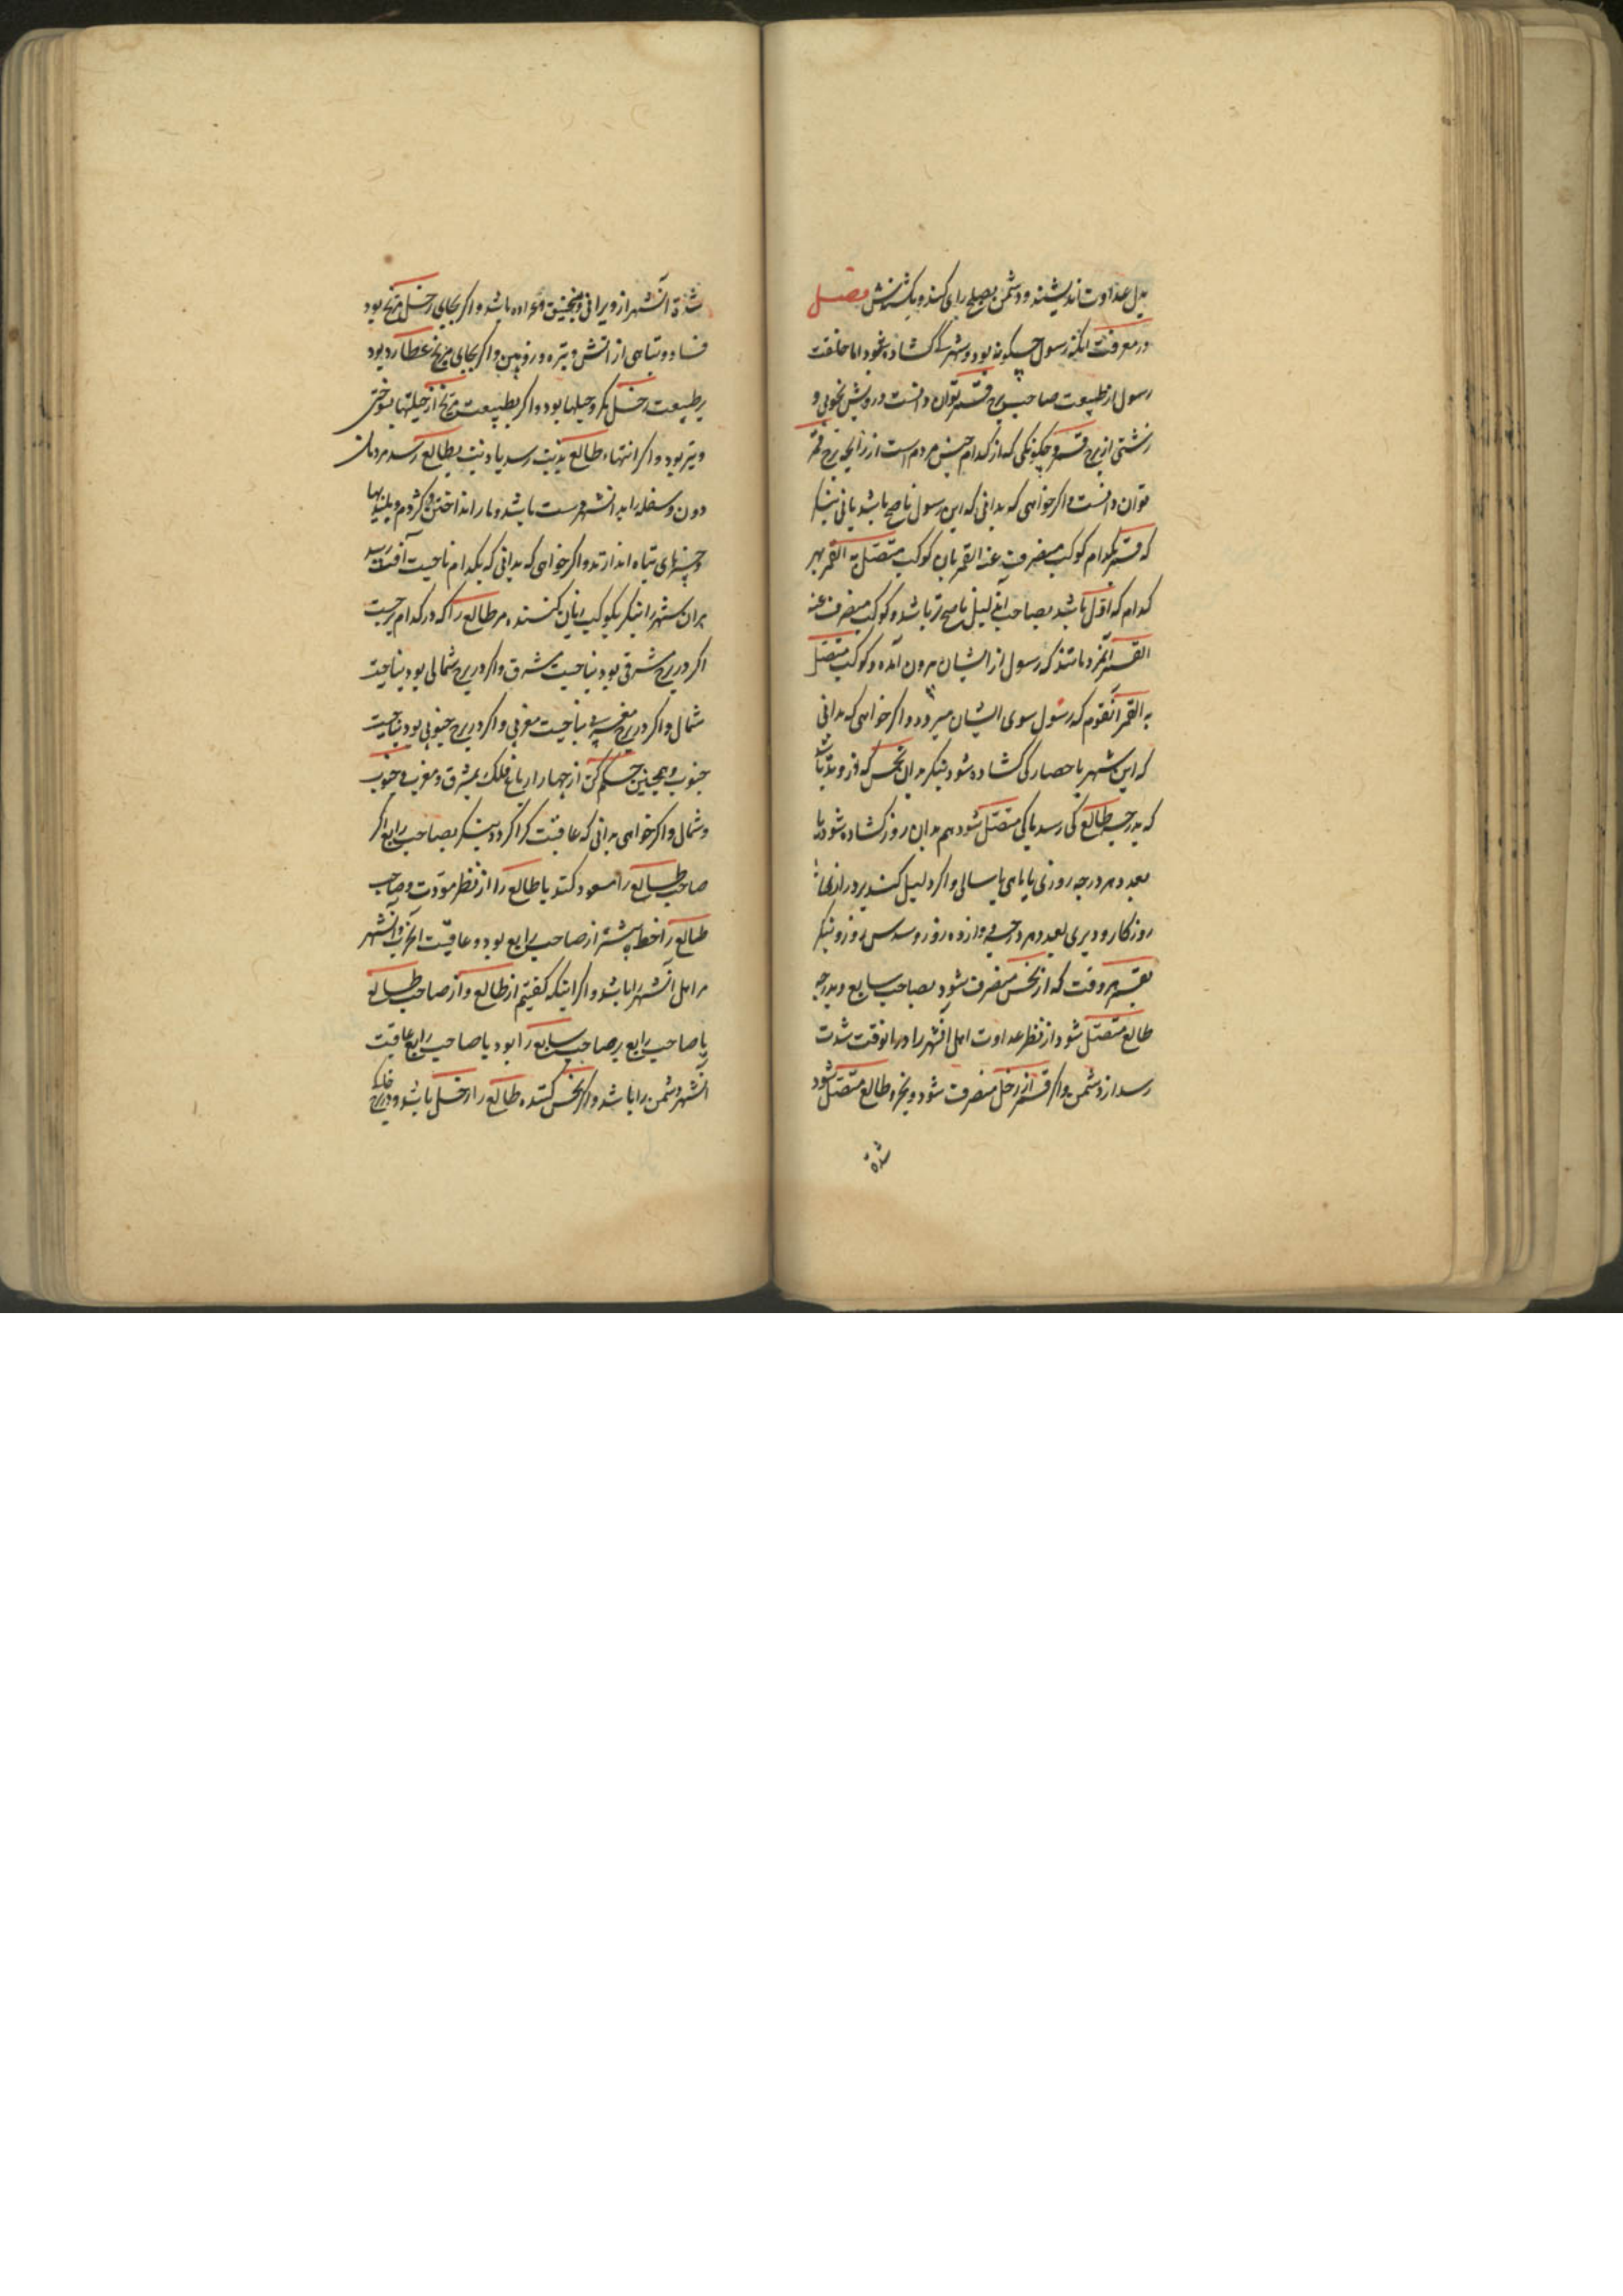 بدل عداوت اندیشند و دشمن بصلح رای کند و یکشدنش فصل
در معرفت آنکه رسول چگونه بود و شهر کی گشاده شود اما خلقت
رسول از طبیعت صاحب برج قمر توان دانست و رویش نخوبی و
زشتی از برج قمر و چگونگی که از کدام جنس مردم است از زایجه برج قمر
توان دانست و اگر خواهی که بدانی که این رسول ناصح باشد یا نی بنگر
که قمر بکدام کوکب منصرف عنه القمر بان کوکب متصل به القمر بهر
کدام که اقبل باشد بصاحب این لیل ناصح تر باشد و کوکب منصرف عنه
القمر آنمردمانند که رسول از ایشان برون آمده و کوکب متصل
به القمر آنقوم که رسول سوی ایشان میرود و اگر خواهی که بدانی
که این شهر یا حصار کی گشاده شود بنگر بدان نحس که
که بدرجه طالع کی رسد یا کی متصل شود هم بدان روز گشاده شود یا
بعدد هر درجه روزی یا ماهی یا سالی و اگر دلیل کند بر درازی
روزگار و دیری بعدد هر درجه دوازده روز و سدس روز و بنگر
بقمر هر وقت که از نحس منصرف شود بصاحب سابع و بدرجه
طالع متصل شود از نظر عداوت اهل آنشهر را در انوقت شدت
رسد از دشمن و اگر قمر از زحل منصرف شود و بخره طالع متصل شود
شدة
شدة آنشهر از ویرانی و منجنیق و عراده باشد و اگر بجای زحل مریخ بود
فساد و تباهی از آتش و تیره و زوبین و اگر بجای مریخ عطارد بود
بر طبیعت زحل مکر و حیلها بود و اگر بطبیعت مریخ از حیلتها بسوختن
و تیر بود و اگر انتهاء طالع بذنب رسد یا ذنب بطالع رسد مردمان
دون و سفله را به آنشهر دست باشد و مار انداختن و کژدم و پلیدیها
و چیزهای تباه اندازند و اگر خواهی که بدانی که بکدام ناحیت آفت رسد
بران شهر را بنگر بکوکب زیان کننده مر طالع را که در کدام برجست
اگر در برج شرقی بود بناحیت مشرق و اگر در برج شمالی بود بناحیت
شمال و اگر در برج مغربی بناحیت مغربی و اگر در برج جنوبی بود بناحیت
جنوب و همچنین حکم کن از چهار ارباع فلک بمشرق و مغرب و جنوب
و شمال و اگر خواهی بدانی که عاقبت کرا گردد بنگر بصاحب رابع اگر
صاحب طالع را مسعود کند یا طالع را از نظر مودت و صاحب
طالع را حظ بیشتر از صاحب رابع بود و عاقبت آنحرب و آنشهر
مر اهل آنشهر را باشد و اگر اینکه گفتیم از طالع و از صاحب طالع
یا صاحب رابع بر صاحب سابع را بود یا صاحب رابع عاقبت
آنشهر دشمن را باشد و اگر نحس کننده طالع را زحل باشد و در برج خاکی